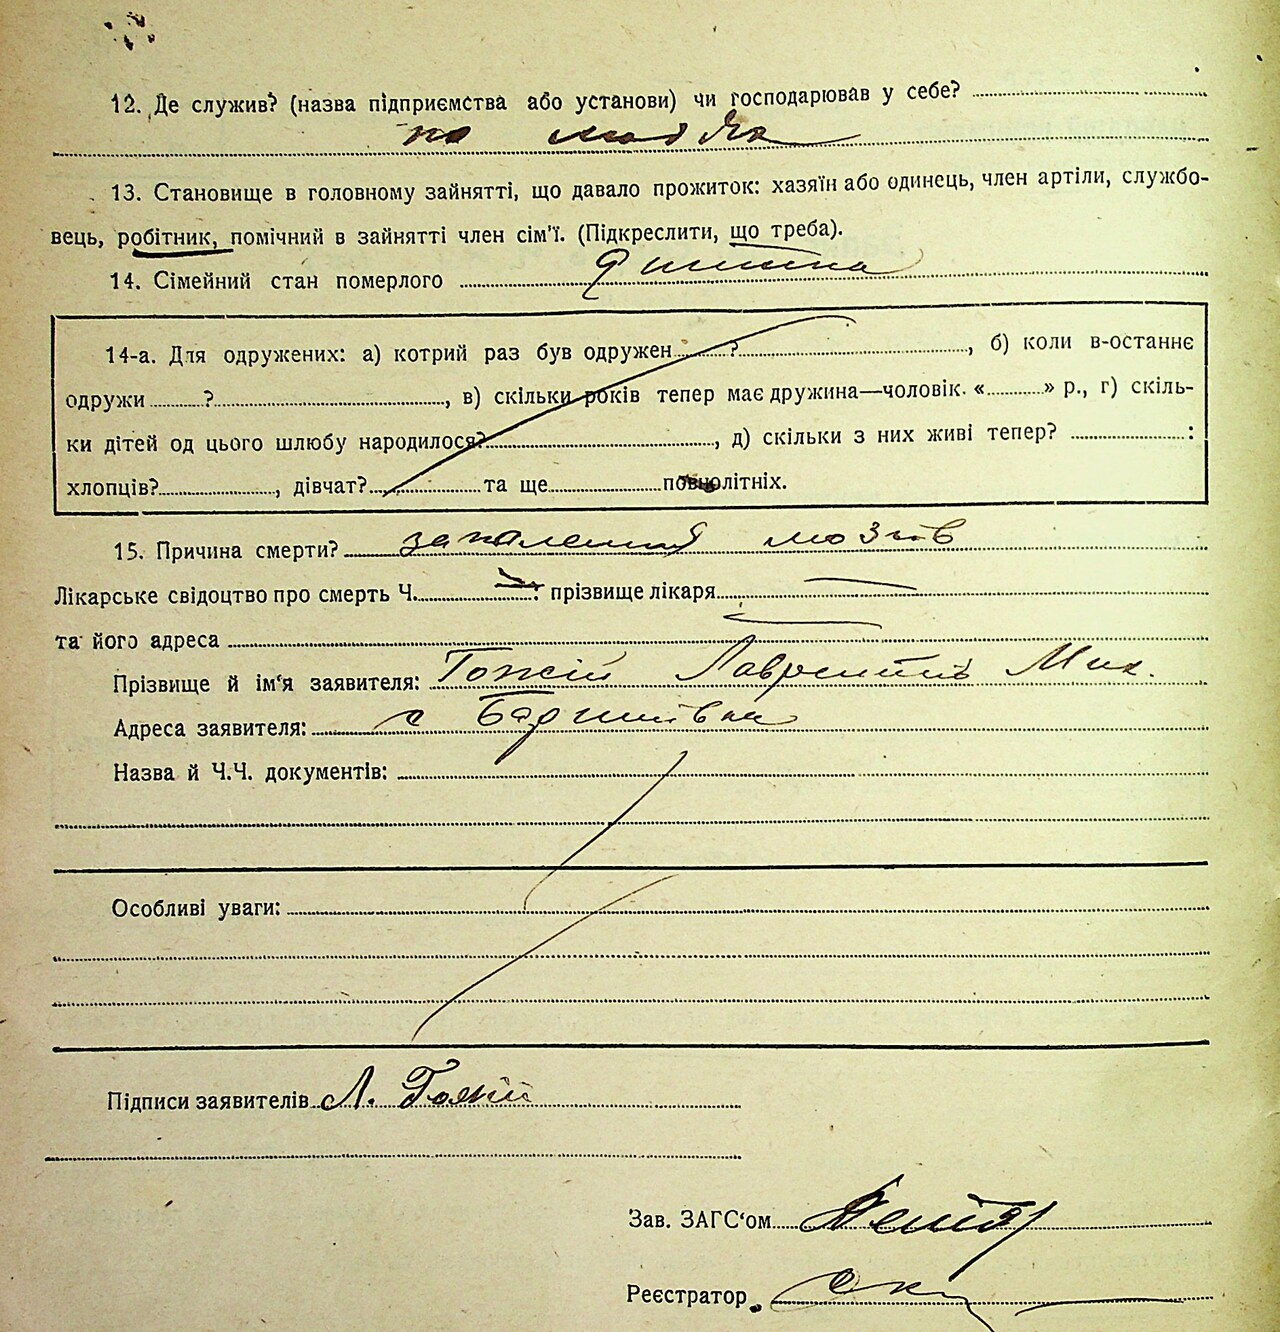 12. Де служив? (назва підприємства або установи) чи господарював у себе?
по людях
13. Становище в головному зайнятті, що давало прожиток: хазяїн або одинець, член артіли, службо-
вець, робітник, помічний в зайнятті член сім'ї. (Підкреслити, що треба).
14. Сімейний стан померлого дитина
14-а. Для одружених: а) котрий раз був одружен ?, б) коли в-останнє
одружи ?, в) скільки років тепер має дружина—чоловік. « » р., г) скіль-
ки дітей од цього шлюбу народилося?, д) скільки з них живі тепер? :
хлопців?, дівчат? та ще повнолітніх.
15. Причина смерти? запалення мозгів
Лікарське свідоцтво про смерть Ч. : прізвище лікаря
та його адреса
Прізвище й ім'я заявителя: Гожій Лаврентій Мих.
Адреса заявителя: с Баришівка
Назва й Ч.Ч. документів:
Особливі уваги:
Підписи заявителів Л. Гожій
Зав. ЗАГС'ом
Реєстратор